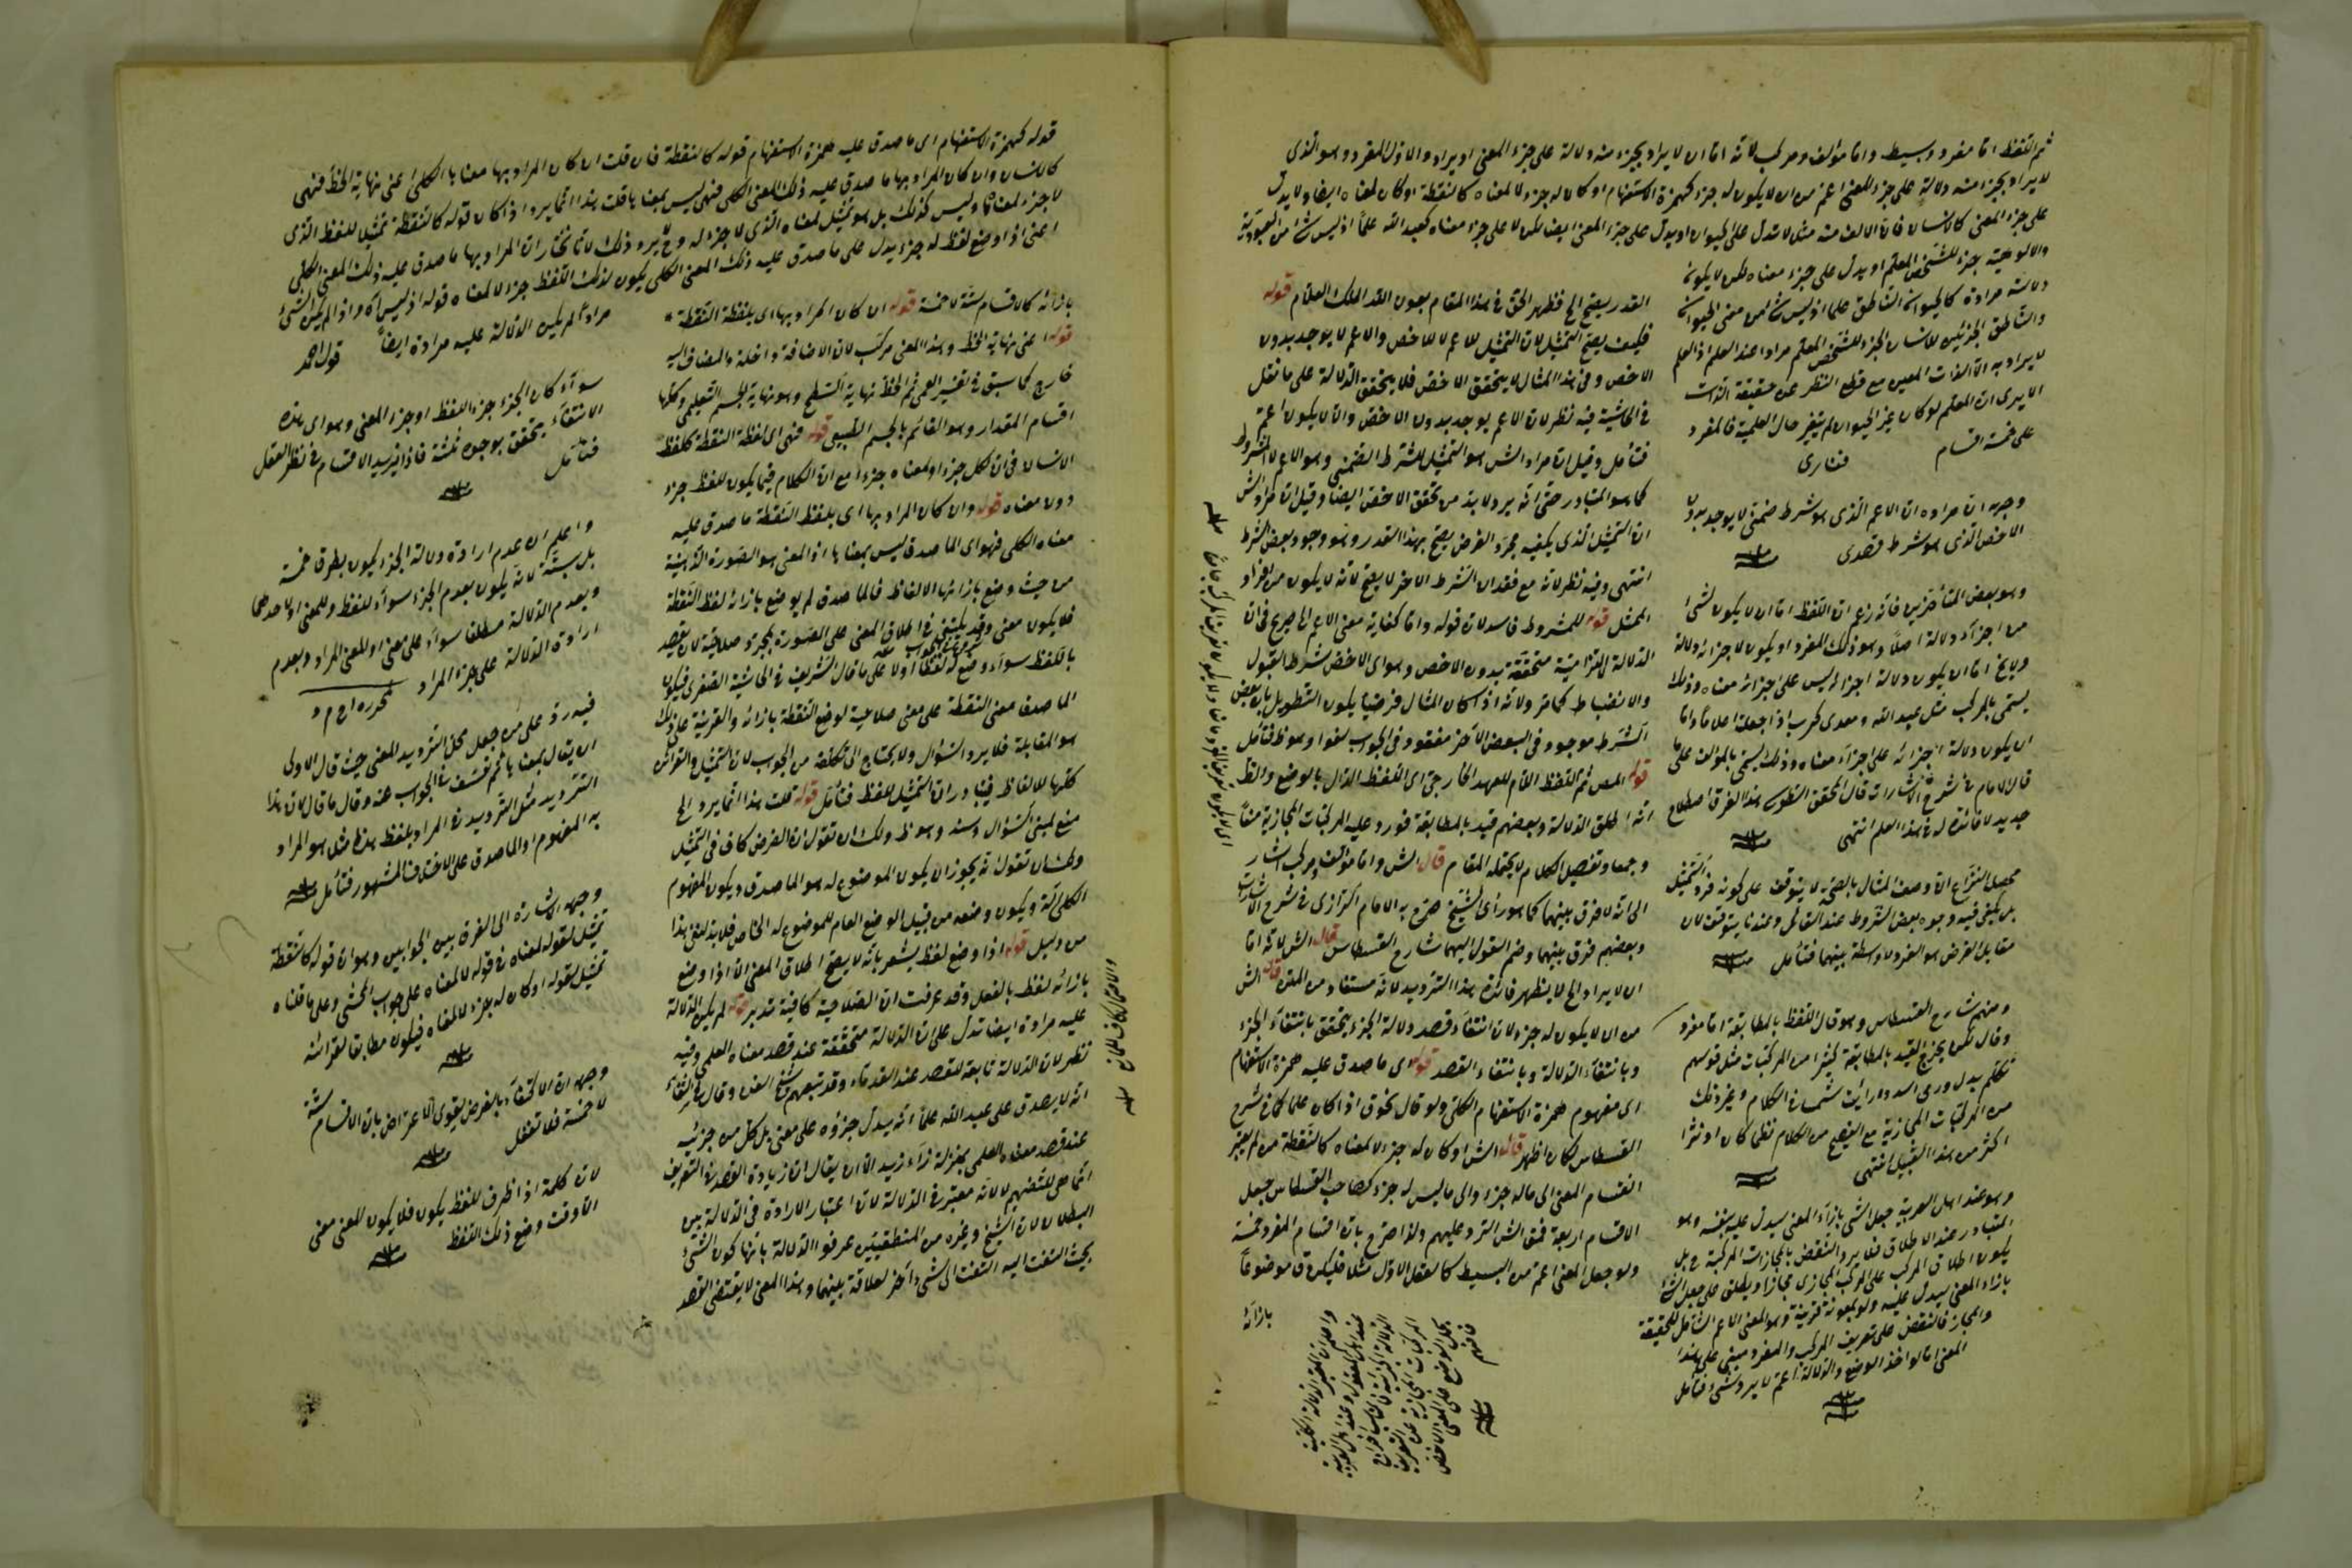 ثم اللفظ اما مفرد وبسيط واما مؤلف ومركب لانه اما ان لا يراد بجزء منه دلالة على جزء المعنى او يراد والاول المفرد وهو الذى
لا يراد بجزء منه دلالة على جزء المعنى اعم من ان لا يكون له جزء كهمزة الاستفهام او كان له جزء لا لمعناه كالنقطة او كان لمعناه ايضا ولا يدل
على جزء المعنى كالانسان فان الالف منه مثلا لا تدل على الحيوان او يدل على جزء المعنى ايضا لكن لا على جزء معناه كعبد الله علما اذ ليس شئ من العبودية
والالوهية جزء للشخص المعلم او يدل على جزء معناه لكن لا يكون
دلالته مرادة كالحيوان الناطق علما اذ ليس شئ من معنى الحيوان
والناطق الجزئين للانسان الجزء للشخص المعلم مرادا عند العلم اذ العلم
لا يراد به الا الذات المعين مع قطع النظر عن حقيقة الذات
الا يرى ان المعلم لو كان غير الحيوان لم يتغير حال العلمية فالمفرد
على خمسة اقسام فنارى
القدر يصح الخ فظهر الحق فى هذا المقام بعون الله الملك العلام قوله
فكيف يصح التمثيل لان التمثيل للاعم لا للاخص والاعم لا يوجد بدون
الاخص وفى هذا المثال لا يتحقق الاخص فلا يتحقق الدلالة على ما نقل
فى الحاشية فيه نظر لان الاعم يوجد بدون الاخص والا لا يكون اعم
فتأمل وقيل ان مراد الش هو التمثيل للشرط الضمنى وهو الاعم لا المشروط
كما هو المتبادر حتى انه يرد لا بد من تحقق الاخص ايضا وقيل ان مراد الش
ان التمثيل الذى يكفيه مجرد الفرض يصح بهذا القدر وهو وجود بعض الشرط
انتهى وفيه نظر لانه مع فقدان الشرط الاخر لا يصح لانه لا يكون من افراد
الممثل قوله للمشروط فاسد لان قوله واما كفاية معنى الاعم الخ صريح فى ان
الدلالة الالتزامية متحققة بدون الاخص وهو اى الاخص شرط القبول
والانضباط كما مر ولانه اذا كان المثال فرضيا يكون التطويل بان بعض
الشرط موجود فى البعض الآخر مفقود فى الجواب لغوا وهو ظ فتأمل
قوله المص ثم اللفظ اللام للعهد الخارجى اى اللفظ الدال بالوضع والظ
انه اطلق الدلالة وبعضهم قيد بالمطابقة فورد عليه المركبات المجازية منعا
وجمعا وتفصيل الكلام لا يحتمله المقام قال الش واما مؤلف ومركب اشار
الى انه لا فرق بينهما كما هو رأى الشيخ صرح به الامام الرازى فى شرح الاشارات
وبعضهم فرق بينهما وضم القول اليهما شارح القسطاس قال الش لانه اما
ان لا يراد الخ لا يظهر فائدة هذا الترديد لانه مستفاد من المتن قال الش
من ان لا يكون له جزء لان انتفاء قصد دلالة الجزء يتحقق بانتفاء الجزء
وبانتفاء الدلالة وبانتفاء القصد قوله اى ما صدق عليه همزة الاستفهام
اى مفهوم همزة الاستفهام الكلى ولو قال نحو ق اذا كان علما كما فى شرح
القسطاس لكان اظهر قال الش او كان له جزء لا لمعناه كالنقطة من لم يعتبر
انقسام المعنى الى ما له جزء والى ما ليس له جزء كصاحب القسطاس جعل
الاقسام اربعة فمنع الش الرد عليهم ولذا صرح بان اقسام المفرد خمسة
ولو جعل المعنى اعم من البسيط كالعقل الاول مثلا فليكن ق موضوعا
بازائه
وجهه ان مراده ان الاعم الذى هو شرط ضمنى لا يوجد بدون
الاخص الذى هو شرط قصدى
وهو بعض المتأخرين فانه زعم ان اللفظ اما ان لا يكون لشئ
من اجزائه دلالة اصلا وهو ذلك المفرد او يكون لاجزائه دلالة
ولا يخ اما ان يكون دلالة اجزائه ليس على اجزائه معناه وذلك
يسمى بالمركب مثل عبد الله ومعدى كرب اذا جعلا اعلاما واما
ان يكون دلالة اجزائه على اجزاء معناه وذلك يسمى بالمؤلف على ما
قال الامام فى شرح الاشارات قال المحقق الطوسى هذا الفرق اصطلاح
جديد لا فائدة له فى هذا العلم انتهى
محصل النزاع ان وصف المثال بالصحة لا يتوقف على كونه فرد التمثيل
بل يكفى فيه وجود بعض الشروط عند القائل وعندنا يتوقف لان
مقابل الفرض هو الفرد ولا وسطة بينهما فتأمل
ومنهم شارح القسطاس وهو قال اللفظ بالمطابقة اما مفرد
وقال لكن يخرج القيد بالمطابقة كثيرا من المركبات مثل قولهم
تكلم بدل ورمى اسد ورأيت شمسا فى الكلام وغير ذلك
من المركبات المجازية مع الفصيح من الكلام نظما كان او نثرا
اكثر من هذا القبيل انتهى
وهو عند اهل العربية جعل الشئ بازاء المعنى ليدل عليه بنفسه وهو
المتبادر عند الاطلاق فلا يرد النقض بالمجازات المركبة ح بل
يكون اطلاق المركب على المركب المجازى مجازا ويطلق على جعل الشئ
بازاء المعنى ليدل عليه ولو بمعونة قرينة وهو المعنى الاعم الشامل للحقيقة
والمجاز فالنقض على تعريف المركب والمفرد مبنى على هذا
المعنى اما لو اخذ الوضع والدلالة اعم لا يرد شئ فتأمل
واعلم ان المعتبر الدلالة الكلية
عند اهل المعقول وعند اهل العربية
الدلالة الجزئية
المركبات المجازية عن التعريف
يحمل الوضع على المعنى الاخص
فافهم
قوله كهمزة الاستفهام اى ما صدق عليه همزة الاستفهام قوله كالنقطة فان قلت ان كان المراد بها معناها الكلى اعنى نهاية الخط فهى
كالانسان وان كان المراد بها ما صدق عليه ذلك المعنى الكلى فهى ليس بمعناها قلت هذا انما يرد اذا كان قوله كالنقطة تمثيل للفظ الذى
لا جزء لمعناه وليس كذلك بل هو تمثيل لمعناه الذى لا جزء له وح لا يرد ذلك لانا نختار ان المراد بها ما صدق عليه ذلك المعنى الكلى
اعنى اذا وضع لفظ له جزء يدل على ما صدق عليه ذلك المعنى الكلى يكون لذلك اللفظ جزء لا لمعناه قوله اذ ليس آه واذا لم يكن الشئ
مرادا لم يكن الدلالة عليه مرادة ايضا قول احمد
بازائه كان اقسام ستة لا خمسة قوله ان كان المراد بها اى بلفظة النقطة
قوله اعنى نهاية الخط وهذا المعنى مركب لان الاضافة داخلة والمضاف اليه
خارج كما سبق فى تفسير العمى ثم الخط نهاية السطح وهو نهاية الجسم التعليمى وكلها
اقسام المقدار وهو القائم بالجسم الطبيعى قوله فهى اى لفظة النقطة كلفظ
الانسان فى ان لكل جزء او لمعناه جزء مع ان الكلام فيما يكون للفظ جزء
دون معناه قوله وان كان المراد بها اى بلفظ النقطة ما صدق عليه
معناه الكلى فهو اى الما صدق ليس بمعناها اذ المعنى هو الصورة الذهنية
من حيث وضع بازائها الالفاظ فالما صدق لم يوضع بازائه لفظ النقطة
فلا يكون معنى وقد يكتفى فى اطلاق المعنى على الصورة بمجرد صلاحية لان يقصد
باللفظ سواء وضع له لفظ او لا على ما قال الشريف فى الحاشية الصغرى فيكون
الما صدق معنى النقطة على معنى صلاحية لوضع النقطة بازائه والقرينة على ذلك
هو المقابلة فلا يرد السؤال ولا يحتاج الى تكلفة من الجواب لان التمثيل والقوانين
كلها للالفاظ فيتبادر ان التمثيل للفظ فتأمل قوله قلت هذا انما يرد الخ
منع لمبنى السؤال وسند وهو ظ ولك ان تقول ان الفرض كاف فى التمثيل
ولك ان تقول انه يجوز ان يكون الموضوع له هو الما صدق ويكون المفهوم
الكلى آلة ويكون وضعه من قبيل الوضع العام للموضوع له الخاص فلا بد لنفى هذا
من دليل قوله اذا وضع لفظ يشعر بانه لا يصح اطلاق المعنى الا اذا وضع
بازائه لفظ بالفعل وقد عرفت ان الصلاحية كافية فتدبر قوله لم يكن الدلالة
عليه مرادة ايضا تدل على ان الدلالة متحققة عند قصد معناه العلمى وفيه
نظر لان الدلالة تابعة للقصد عند القدماء وقد تبعهم شيخ الفن وقال فى الشفاء
انه لا يصدق على عبد الله علما انه يدل جزؤه على معنى بل كل من جزئيه
عند قصد معناه العلمى بمنزلة زاء زيد الا ان يقال ان زيادة القصد فى التعريف
انما هى للتفهيم لا لانه معتبر فى الدلالة لان اعتبار الارادة فى الدلالة بين
البطلان لان الشيخ وغيره من المنطقيين عرفوا الدلالة بانها كون الشئ
بحيث التفت اليه التفت الى شئ آخر لعلاقة بينهما وهذا المعنى لا يقتضى القصد
سواء كان الجزء جزء اللفظ او جزء المعنى وهو اى هذه
الانتفاء يتحقق بوجوه ثلثة فاذا يزيد الاقسام فى نظر العقل
فتأمل
واعلم ان عدم ارادة دلالة الجزء يكون بطرق خمسة
بل ستة لانه يكون بعدم الجزء سواء للفظ وللمعنى او لاحدهما
وبعدم الدلالة مطلقا سواء على معنى او للمعنى المراد وبعدم
ارادة الدلالة على جزء المراد لمحرره
فيه رد على من جعل محل الترديد للمعنى حيث قال الاولى
ان يقال بمعناها ثم تعسف فى الجواب عنه وقال ما قال لان هذا
الترديد مثل الترديد فى المراد بلفظ هذا مثل هو المراد
به المفهوم او الما صدق على الاختلاف المشهور فتأمل
وجهه الاشارة الى الفرق بين الجوابين وهو ان قوله كالنقطة
تمثيل لقوله لمعناه فى قوله لا لمعناه على جواب المحشى وعلى ما قلناه
تمثيل لقوله او كان له جزء لا لمعناه فيكون مطابقا لقرائنه
وجهه ان الاكتفاء بالفرض يقوى الاعتراض بان الاقسام ستة
لا خمسة فلا تغفل
لان كلمة اذا ظرف للفظ يكون فلا يكون للمعنى معنى
الا وقت وضع ذلك اللفظ